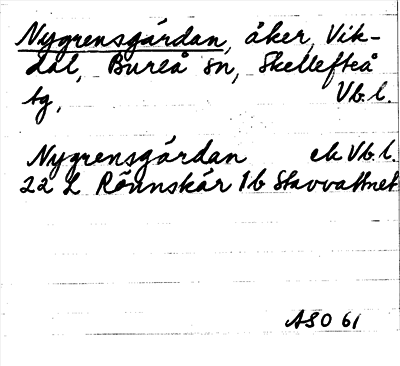 Nygrensgårdan, åker, Vik-
dal, Bureå sn, Skellefteå
tg, Vb. l.
Nygrensgårdan ek Vb. l.
22 L Rönnskär 1b Stavvattnet
ASO 61